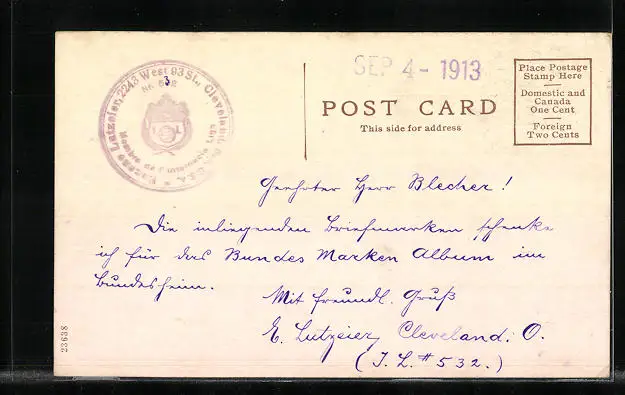 SEP 4 - 1913
POST CARD
This side for address
Place Postage
Stamp Here
Domestic and
Canada
One Cent
Foreign
Two Cents
Lutzeier, 2243 West 93 St., Cleveland, U.S.A.
No. 532
Geehrter Herr Blecher!
Die inliegenden Briefmarken schenke
ich für das Bundes Marken Album im
Bundesheim.
Mit freundl. Gruß
E. Lutzeier, Cleveland. O.
(I. L. # 532.)
23638